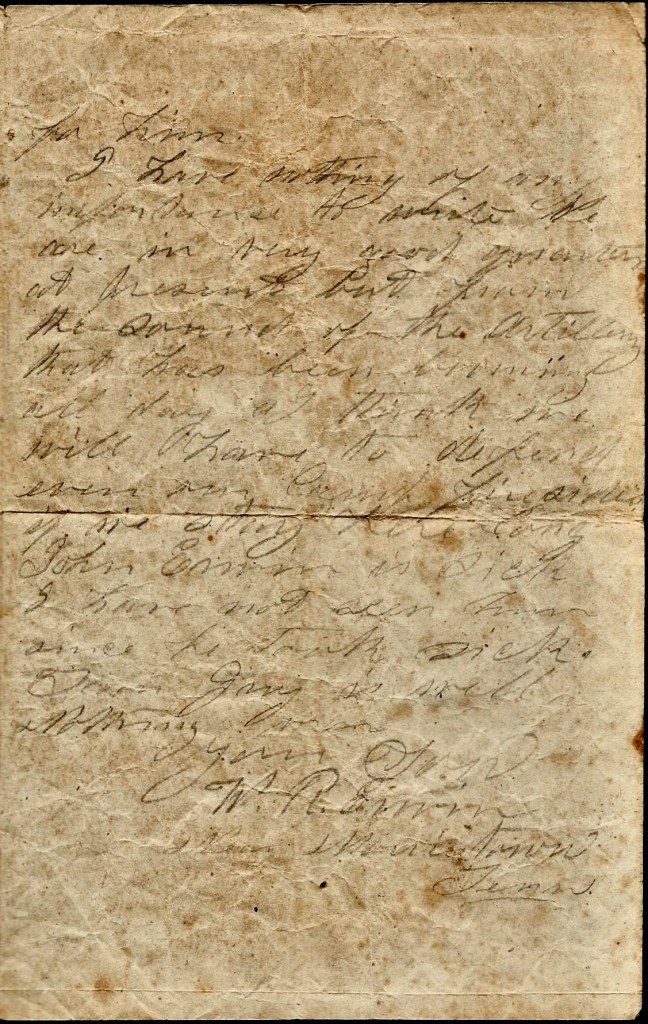 for him.
I have nothing of any
importance to write We
are in very good quarters
at present but from
the sound of the Artillery
that has been booming
all day I think we
will have to defend
even our Camp firesides
if we stay here long
John Erwin is sick
I have not seen him
since he took sick.
Gray is well
Nothing more
Your
W. R. Erwin
Near Morristown
Tenn.